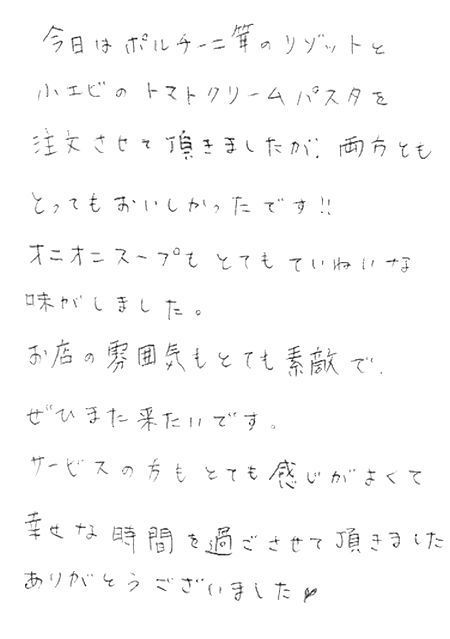 今日はポルチーニ茸のリゾットと
小エビのトマトクリームパスタを
注文させて頂きましたが、両方とも
とってもおいしかったです!!
オニオニスープもとてもていねいな
味がしました。
お店の雰囲気もとても素敵で、
ぜひまた来たいです。
サービスの方もとても感じがよくて
幸せな時間を過ごさせて頂きました
ありがとうございました♥